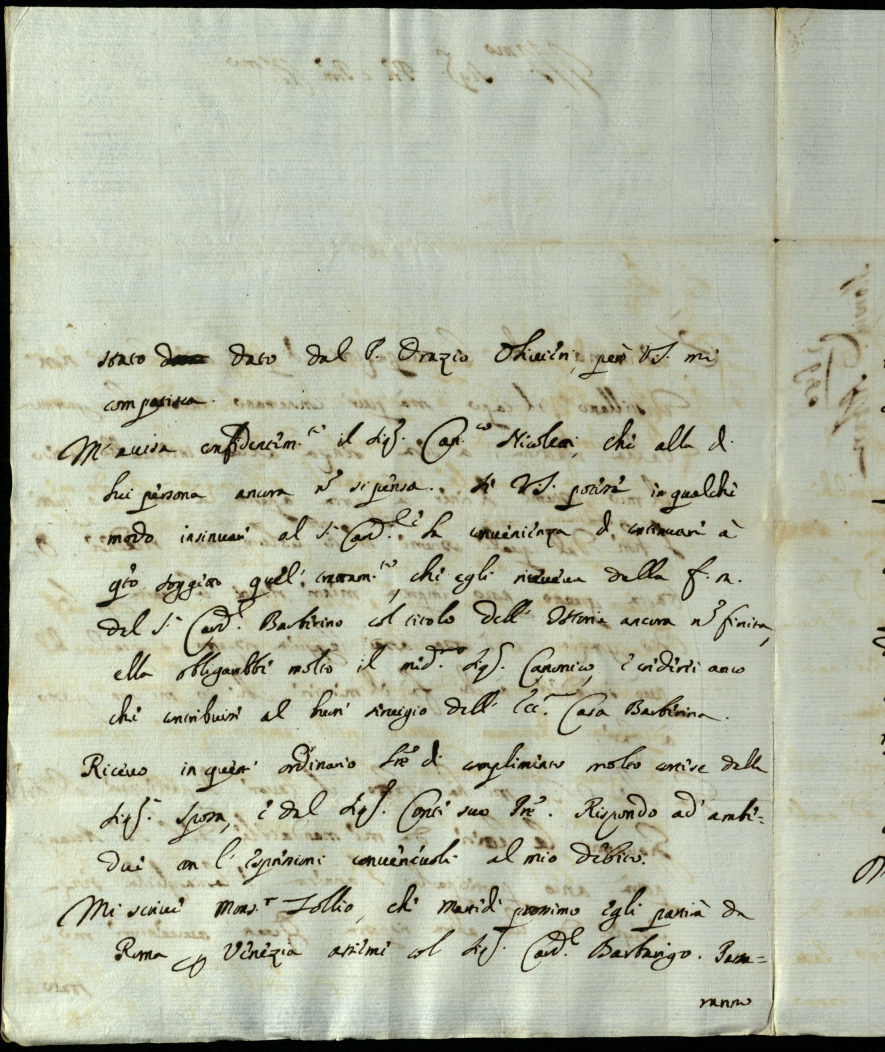 stato dato dal P. Orazio Olivieri, però V.S. mi
compatisca.
Mi avisa confidentem.te il Sig.r Can.co Nicoleti, che alla di
lui persona ancora nõ si pensa. Se V.S. potesse in qualche
modo insinuare al S.r Card.le la convenienza di continuare à
q̃to soggetto quel trattam.to, che egli riceveva dalla f. m.
del S.r Card.l Barberino col titolo dell' Istoria ancora nõ finita,
ella obligarebbe molto il med.mo Sig.r Canonico, e crederei anco
che contribuire al buon servigio dell' Ecc.ma Casa Barberina.
Ricevo in quest' ordinario lr̃e di complimento molto cortese dalla
Sig.ra Sposa, e dal Sig.r Conte suo Pr̃e. Rispondo ad' ambi=
due con l' espressioni convenevoli al mio debito.
Mi scrive Mons.r Lollio, che Martedi prossimo egli partirà da
Roma p Venezia assieme col Sig.r Card.l Barbarigo. Passa=
ranno